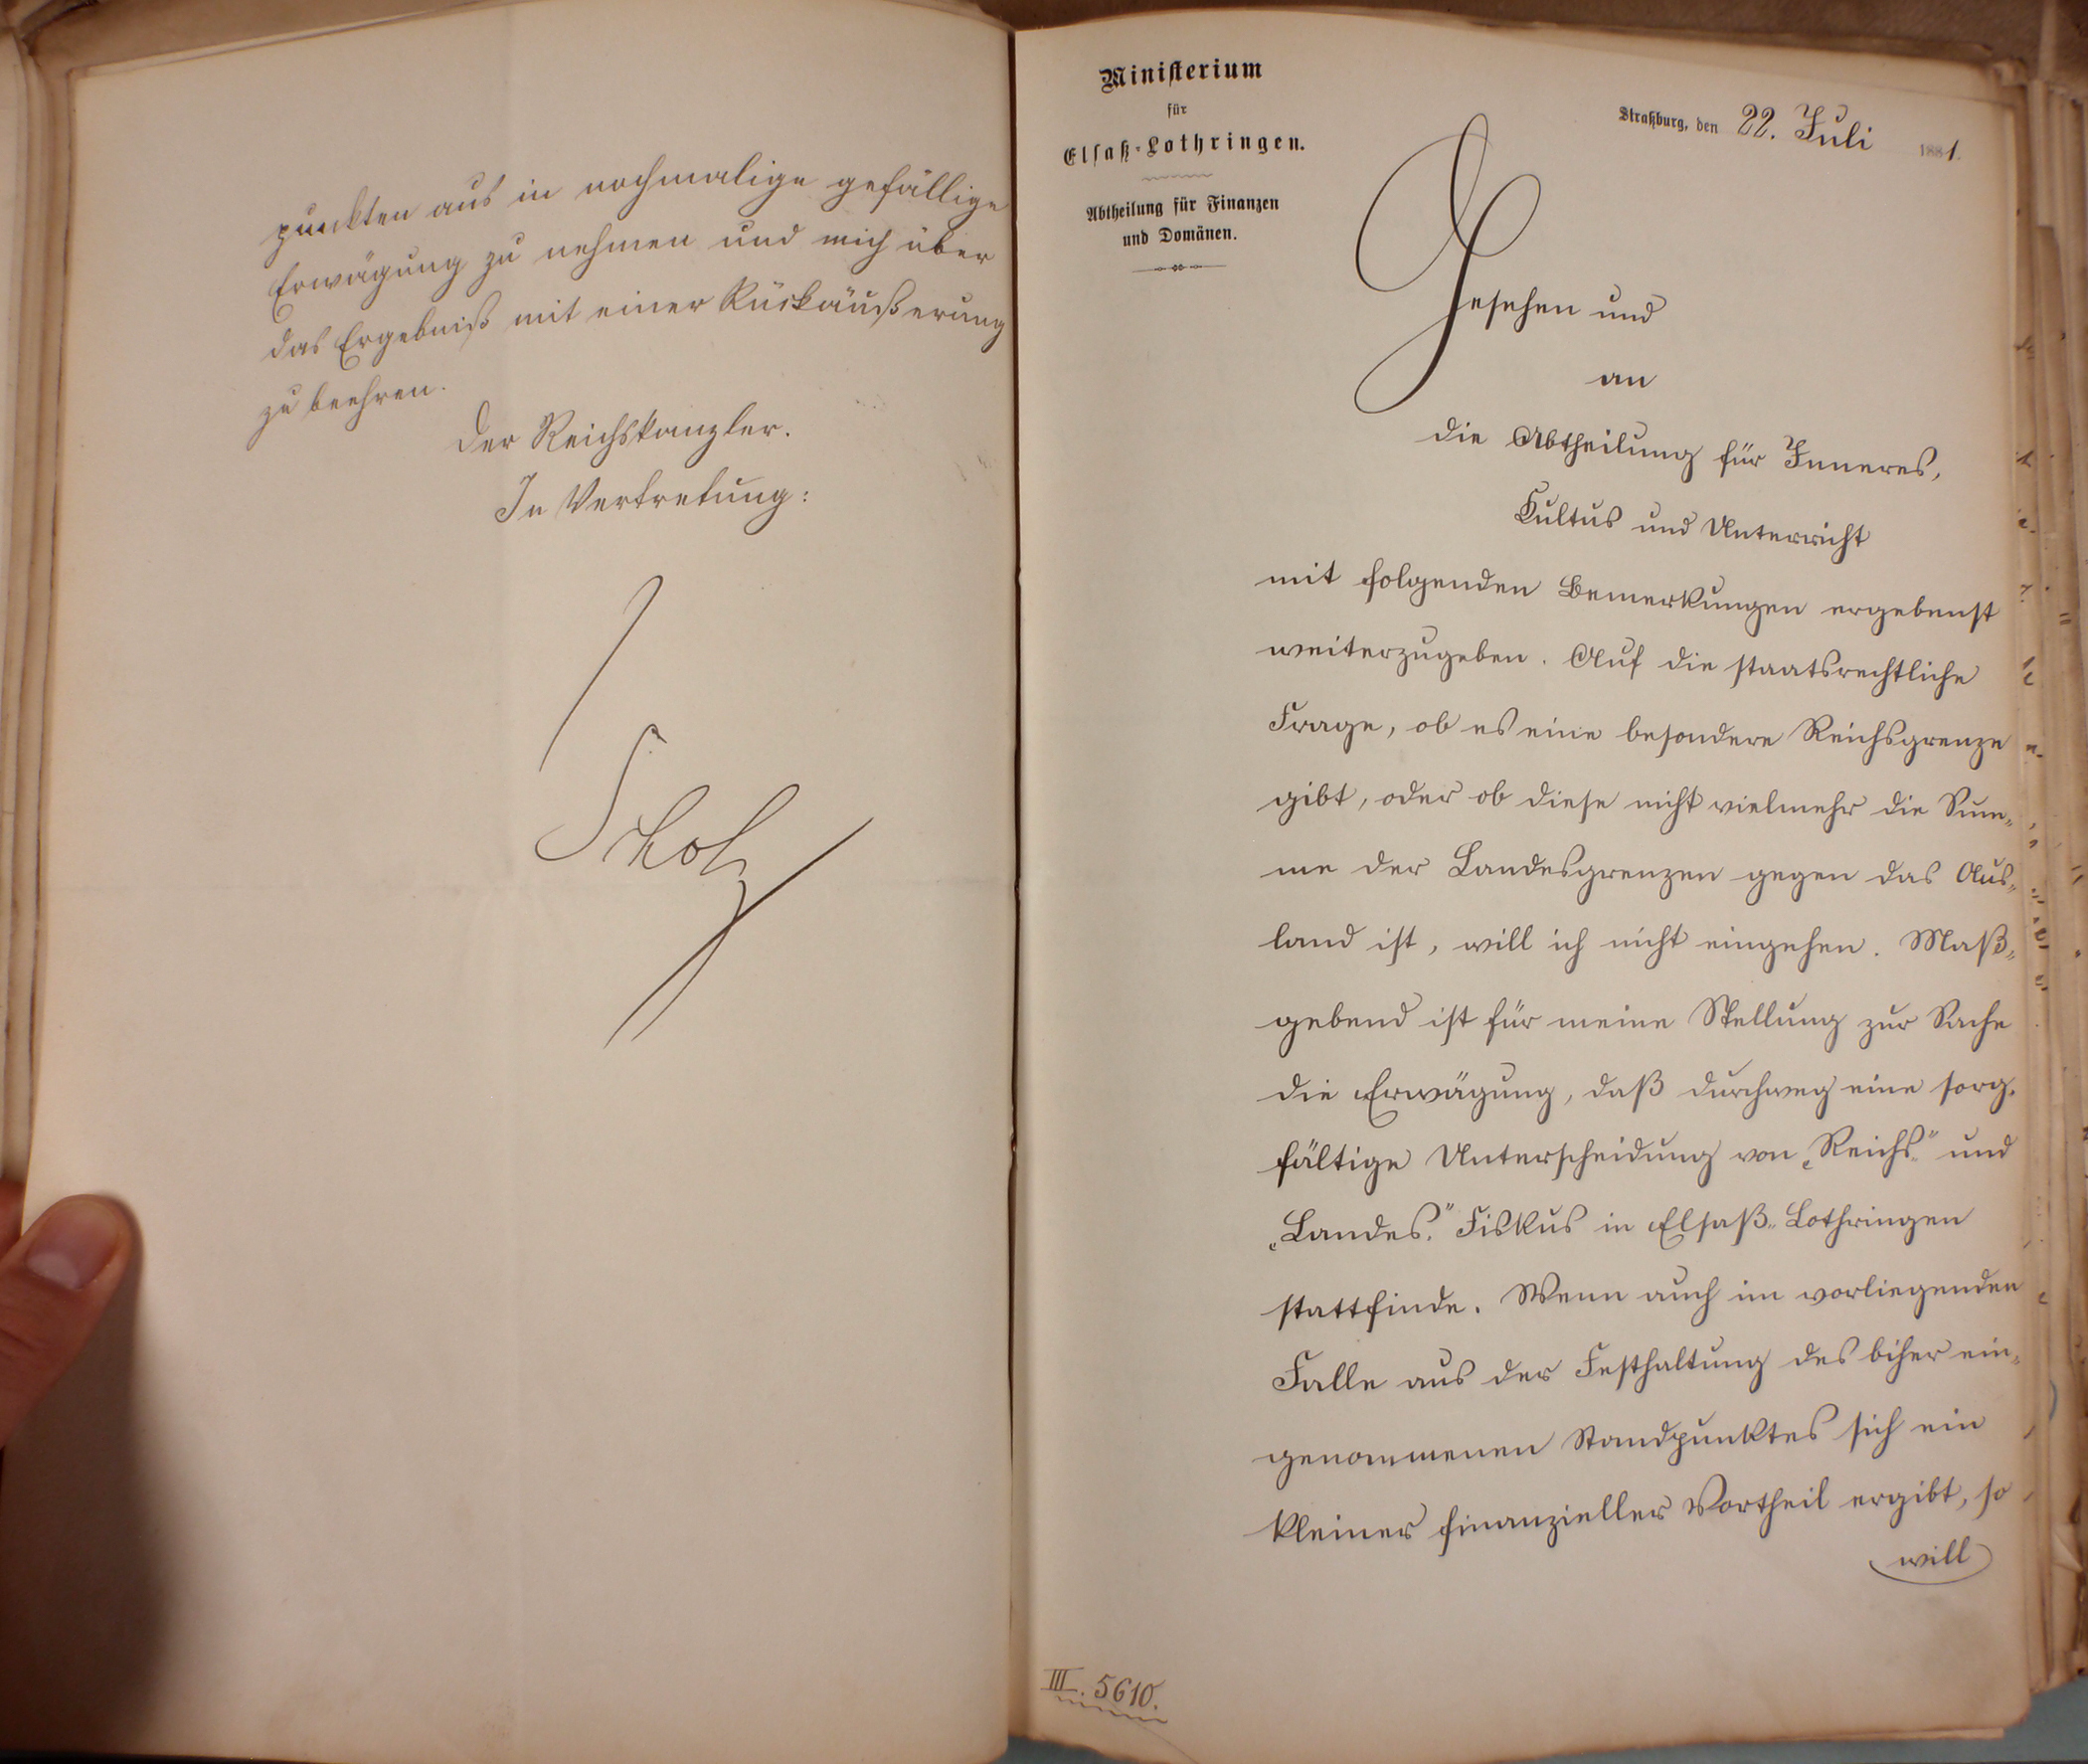 punkten aus in nochmalige gefällige
Erwägung zu nehmen und mich über
das Ergebniß mit einer Rückäußerung
zu beehren.
Der Reichskanzler.
In Vertretung:
Scholz
Ministerium
für
Elsaß-Lothringen.
Abtheilung für Finanzen
und Domänen.
Straßburg, den 22. Juli 1881.
Gesehen und
an
die Abtheilung für Inneres,
Kultus und Unterricht
mit folgenden Bemerkungen ergebenst
weiterzugeben. Auf die staatsrechtliche
Frage, ob es eine besondere Reichsgrenze
gibt, oder ob diese nicht vielmehr die Sum-
me der Landesgrenzen gegen das Aus-
land ist, will ich nicht eingehen. Maß-
gebend ist für meine Stellung zur Sache
die Erwägung, daß durchweg eine sorg-
fältige Unterscheidung von „Reichs-" und
„Landes-" Fiskus in Elsaß-Lothringen
stattfinde. Wenn auch im vorliegenden
Falle aus der Festhaltung des biher ein-
genommenen Standpunktes sich ein
kleiner finanzieller Vortheil ergibt, so
will
III. 5610.